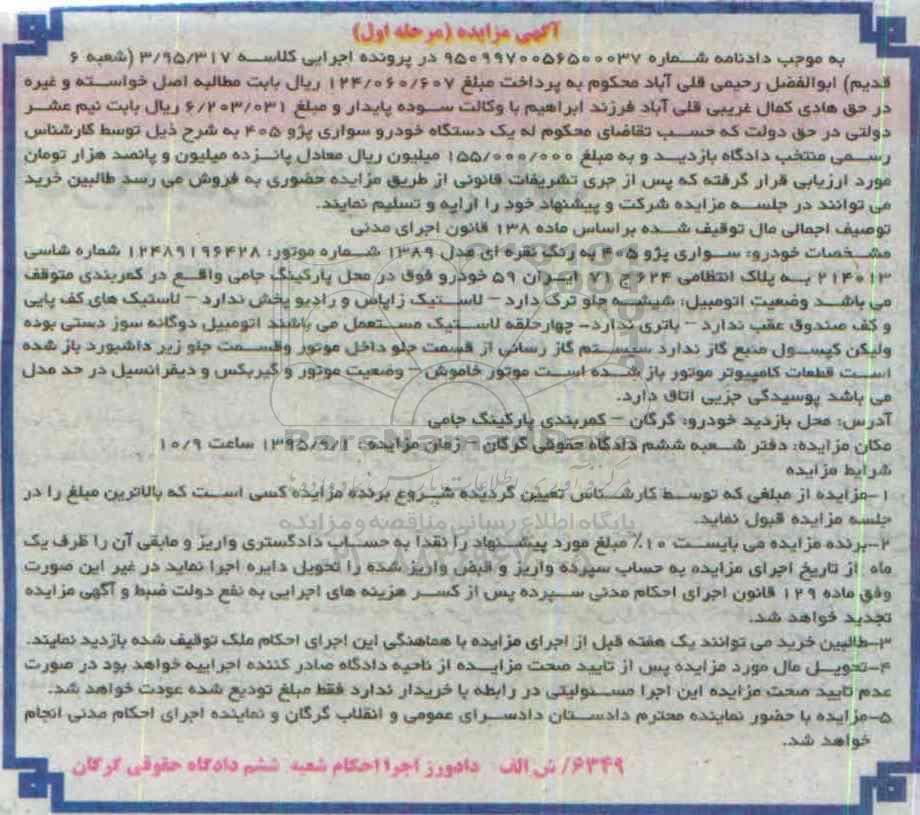 آگهی مزایده (مرحله اول)
به موجب دادنامه شماره ۹۵۰۹۹۷۰۰۵۶۵۰۰۰۳۷ در پرونده اجرایی کلاسه ۳/۹۵/۳۱۷ (شعبه ۶
قدیم) ابوالفضل رحیمی قلی آباد محکوم به پرداخت مبلغ ۱۲۴/۰۶۰/۶۰۷ ریال بابت مطالبه اصل خواسته و غیره
در حق هادی کمال غریبی قلی آباد فرزند ابراهیم با وکالت سوده پایدار و مبلغ ۶/۲۰۳/۰۳۱ ریال بابت نیم عشر
دولتی در حق دولت که حسب تقاضای محکوم له یک دستگاه خودرو سواری پژو ۴۰۵ به شرح ذیل توسط کارشناس
رسمی منتخب دادگاه بازدید و به مبلغ ۱۵۵/۰۰۰/۰۰۰ میلیون ریال معادل پانزده میلیون و پانصد هزار تومان
مورد ارزیابی قرار گرفته که پس از جری تشریفات قانونی از طریق مزایده حضوری به فروش می رسد طالبین خرید
می توانند در جلسه مزایده شرکت و پیشنهاد خود را ارایه و تسلیم نمایند.
توصیف اجمالی مال توقیف شده براساس ماده ۱۳۸ قانون اجرای مدنی
مشخصات خودرو: سواری پژو ۴۰۵ به رنگ نقره ای مدل ۱۳۸۹ شماره موتور: ۱۲۴۸۹۱۹۶۴۲۸ شماره شاسی
۲۱۴۰۱۳ به پلاک انتظامی ۶۲۴ ج ۷۱ ایران ۵۹ خودرو فوق در محل پارکینگ جامی واقع در کمربندی متوقف
می باشد وضعیت اتومبیل: شیشه جلو ترک دارد – لاستیک زاپاس و رادیو پخش ندارد – لاستیک های کف پایی
و کف صندوق عقب ندارد – باتری ندارد- چهارحلقه لاستیک مستعمل می باشند اتومبیل دوگانه سوز دستی بوده
ولیکن کپسول منبع گاز ندارد سیستم گاز رسانی از قسمت جلو داخل موتور وقسمت جلو زیر داشبورد باز شده
است قطعات کامپیوتر موتور باز شده است موتور خاموش – وضعیت موتور و گیربکس و دیفرانسیل در حد مدل
می باشد پوسیدگی جزیی اتاق دارد.
آدرس: محل بازدید خودرو: گرگان – کمربندی پارکینگ جامی
مکان مزایده: دفتر شعبه ششم دادگاه حقوقی گرگان – زمان مزایده: ۱۳۹۵/۹/۱ ساعت ۱۰/۹
شرایط مزایده
۱-مزایده از مبلغی که توسط کارشناس تعیین گردیده شروع برنده مزایده کسی است که بالاترین مبلغ را در
جلسه مزایده قبول نماید.
۲-برنده مزایده می بایست ۱۰٪ مبلغ مورد پیشنهاد را نقدا به حساب دادگستری واریز و مابقی آن را ظرف یک
ماه از تاریخ اجرای مزایده به حساب سپرده واریز و قبض واریز شده را تحویل دایره اجرا نماید در غیر این صورت
وفق ماده ۱۲۹ قانون اجرای احکام مدنی سپرده پس از کسر هزینه های اجرایی به نفع دولت ضبط و آگهی مزایده
تجدید خواهد شد.
۳-طالبین خرید می توانند یک هفته قبل از اجرای مزایده با هماهنگی این اجرای احکام ملک توقیف شده بازدید نمایند.
۴-تحویل مال مورد مزایده پس از تایید صحت مزایده از ناحیه دادگاه صادر کننده اجراییه خواهد بود در صورت
عدم تایید صحت مزایده این اجرا مسئولیتی در رابطه با خریدار ندارد فقط مبلغ تودیع شده عودت خواهد شد.
۵-مزایده با حضور نماینده محترم دادستان دادسرای عمومی و انقلاب گرگان و نماینده اجرای احکام مدنی انجام
خواهد شد.
۶۳۴۹/ ش الف دادورز اجرا احکام شعبه ششم دادگاه حقوقی گرگان
پایگاه اطلاع رسانی مناقصه و مزایده